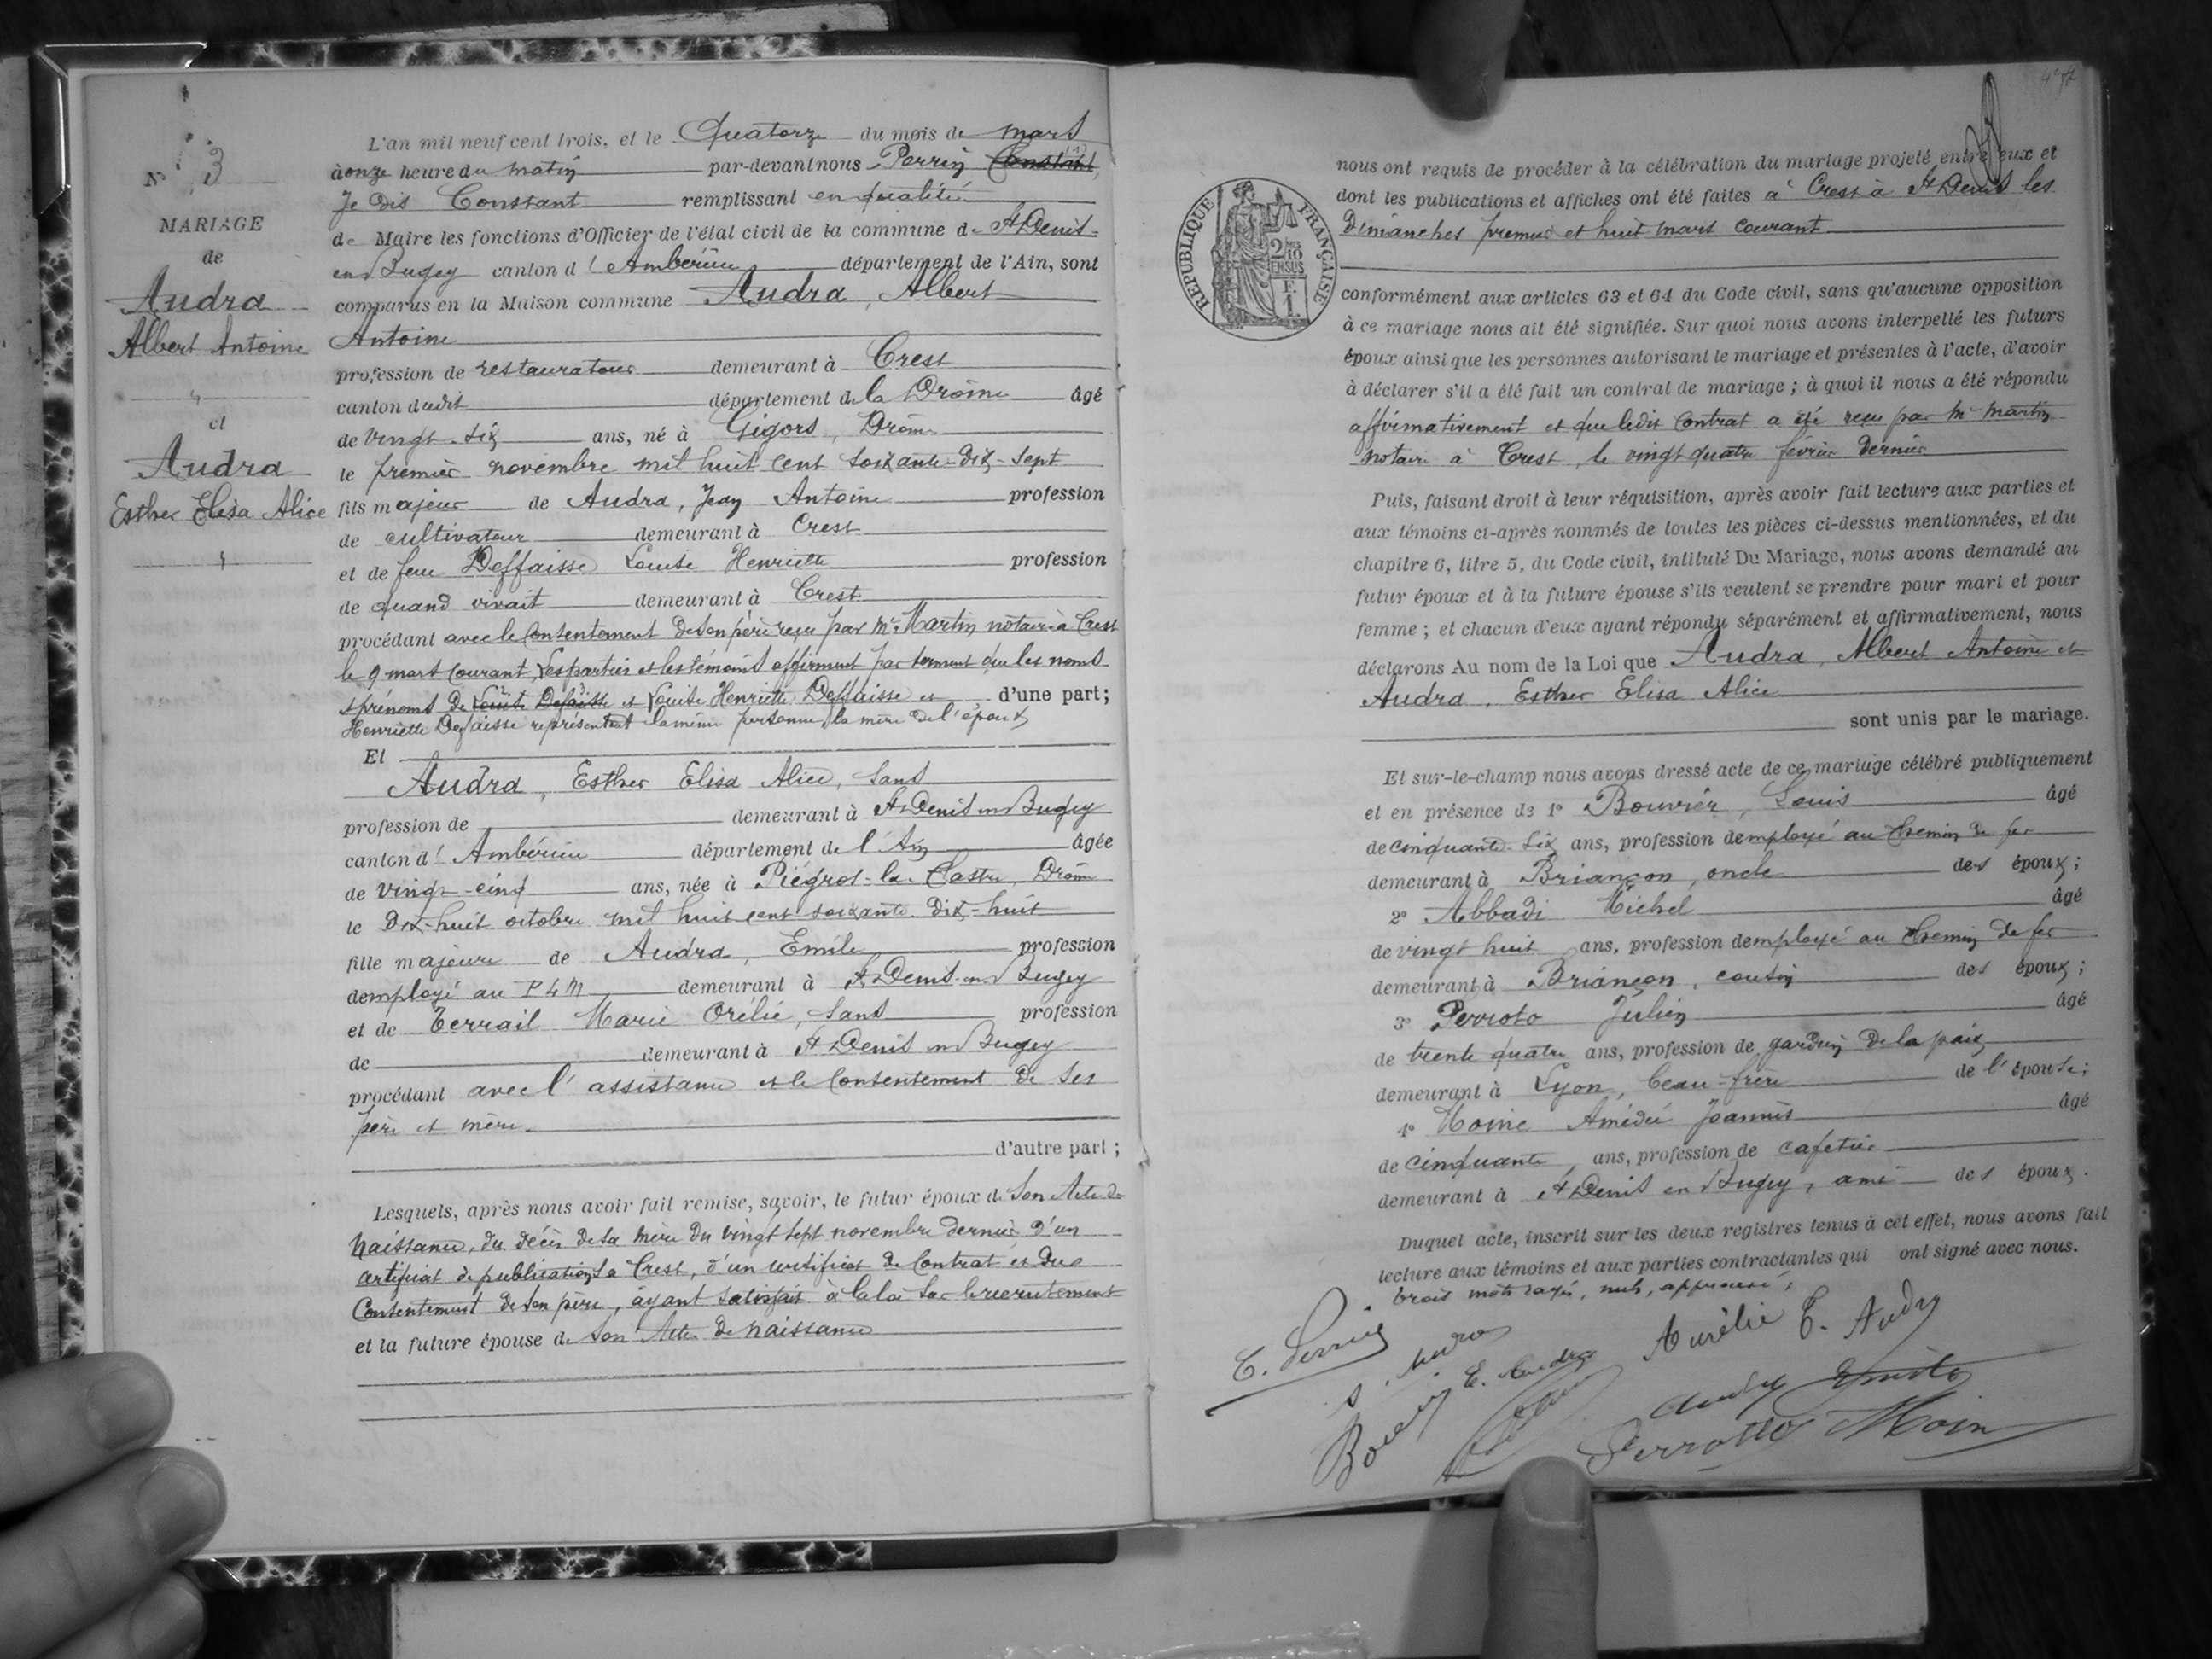 N° 3
MARIAGE
de
Audra
Albert Antoine
et
Audra
Esther Elisa Alice
L'an mil neuf cent trois, et le Quatorze du mois de mars
à onze heure du matin par-devant nous Perrin Constant
Je dis Constant remplissant en qualité
de Maire les fonctions d'Officier de l'état civil de la commune de St Denis-
en Bugey canton d'Ambérieu département de l'Ain, sont
comparus en la Maison commune Audra, Albert
Antoine
profession de restaurateur demeurant à Crest
canton dudit département de la Drôme âgé
de vingt-six ans, né à Gigors, Drôme
le premier novembre mil huit cent soixante-dix-sept
fils majeur de Audra, Jean Antoine profession
de cultivateur demeurant à Crest
et de feue Deffaisse Louise Henriette profession
de quand vivait demeurant à Crest
procédant avec le consentement de son père reçu par Me Martin notaire à Crest
le 9 mars courant, Les parties et les témoins affirment par serment que les noms
et prénoms de Louise Defaisse et Louise Henriette Deffaisse et d'une part;
Henriette Defaisse représentent la même personne, la mère de l'époux
Et
Audra, Esther Elisa Alice, sans
profession de demeurant à St Denis en Bugey
canton d'Ambérieu département de l'Ain âgée
de vingt-cinq ans, née à Piégros-la-Clastre, Drôme
le dix-huit octobre mil huit cent soixante-dix-huit
fille majeure de Audra, Emile profession
d'employé au PLM demeurant à St Denis-en-Bugey
et de Terrail Marie Orélie, sans profession
de demeurant à St Denis en Bugey
procédant avec l'assistance et le consentement de ses
père et mère
d'autre part;
Lesquels, après nous avoir fait remise, savoir, le futur époux de son Acte de
naissance, du décès de sa mère du vingt sept novembre dernier, d'un
certificat de publications à Crest, d'un certificat de contrat et du
consentement de son père, ayant satisfait à la loi sur le recrutement
et la future épouse de son Acte de naissance
nous ont requis de procéder à la célébration du mariage projeté entre eux et
dont les publications et affiches ont été faites à Crest à St Denis les
Dimanches premier et huit mars courant
RÉPUBLIQUE FRANÇAISE
conformément aux articles 63 et 64 du Code civil, sans qu'aucune opposition
à ce mariage nous ait été signifiée. Sur quoi nous avons interpellé les futurs
époux ainsi que les personnes autorisant le mariage et présentes à l'acte, d'avoir
à déclarer s'il a été fait un contrat de mariage; à quoi il nous a été répondu
affirmativement et que ledit contrat a été reçu par Me Martin
notaire à Crest, le vingt quatre février dernier
Puis, faisant droit à leur réquisition, après avoir fait lecture aux parties et
aux témoins ci-après nommés de toutes les pièces ci-dessus mentionnées, et du
chapitre 6, titre 5, du Code civil, intitulé Du Mariage, nous avons demandé au
futur époux et à la future épouse s'ils veulent se prendre pour mari et pour
femme; et chacun d'eux ayant répondu séparément et affirmativement, nous
déclarons Au nom de la Loi que Audra, Albert Antoine et
Audra, Esther Elisa Alice
sont unis par le mariage.
Et sur-le-champ nous avons dressé acte de ce mariage célébré publiquement
et en présence de 1° Bouvier, Louis âgé
de cinquante-six ans, profession d'employé au chemin de fer
demeurant à Briançon, oncle des époux;
2° Abbadi Michel âgé
de vingt huit ans, profession d'employé au chemin de fer
demeurant à Briançon, cousin des époux;
3° Perroto Julien âgé
de trente quatre ans, profession de gardien de la paix
demeurant à Lyon, beau-frère de l'épouse;
4° Moine Amédée Joannès âgé
de cinquante ans, profession de cafetier
demeurant à St Denis en Bugey, ami des époux.
Duquel acte, inscrit sur les deux registres tenus à cet effet, nous avons fait
lecture aux témoins et aux parties contractantes qui ont signé avec nous.
trois mots rayés, nuls, approuvé;
C. Perrin
Aurélie E. Audra
E. Audra
Perrotto Moin